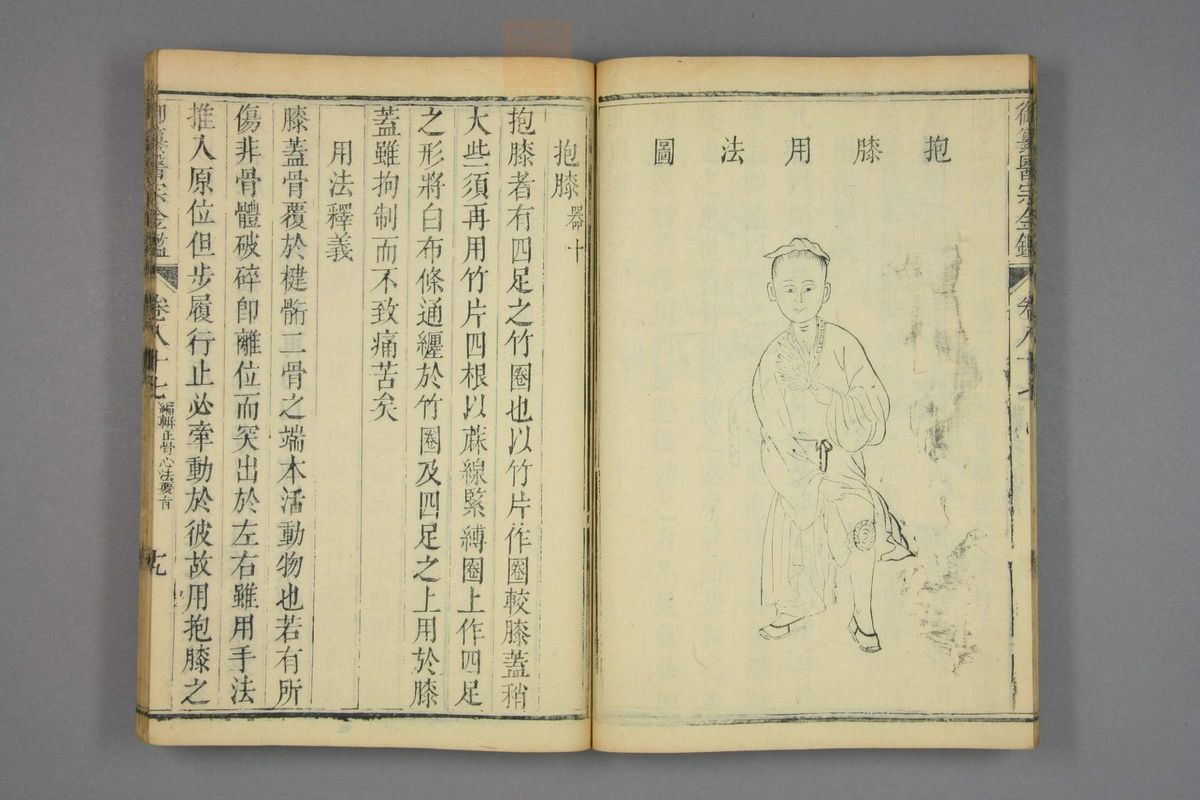 御纂醫宗金鑑
卷八十七
抱膝用法圖
抱膝器十
抱膝者有四足之竹圈也以竹片作圈較膝蓋稍
大些須再用竹片四根以蔴線緊縛圈上作四足
之形將白布條通纏於竹圈及四足之上用於膝
蓋雖拘制而不致痛苦矣
用法釋義
膝蓋骨覆於楗䯒二骨之端本活動物也若有所
傷非骨體破碎卽離位而突出於左右雖用手法
推入原位但步履行止必牽動於彼故用抱膝之
御纂醫宗金鑑
卷八十七
編輯正骨心法要旨
十九